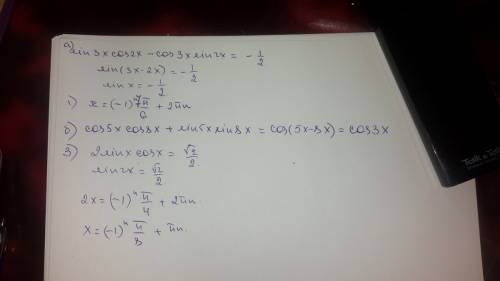 а) sin3x cos2x - cos3x sin2x = - 1/2
sin(3x-2x) = - 1/2
sin x = - 1/2
1) x = (-1)ⁿ 7π/6 + 2πn
б) cos5x cos8x + sin5x sin8x = cos(5x-8x) = cos3x
3) 2sinx cosx = √2/2
sin2x = √2/2
2x = (-1)ⁿ π/4 + 2πn.
x = (-1)ⁿ π/8 + πn.